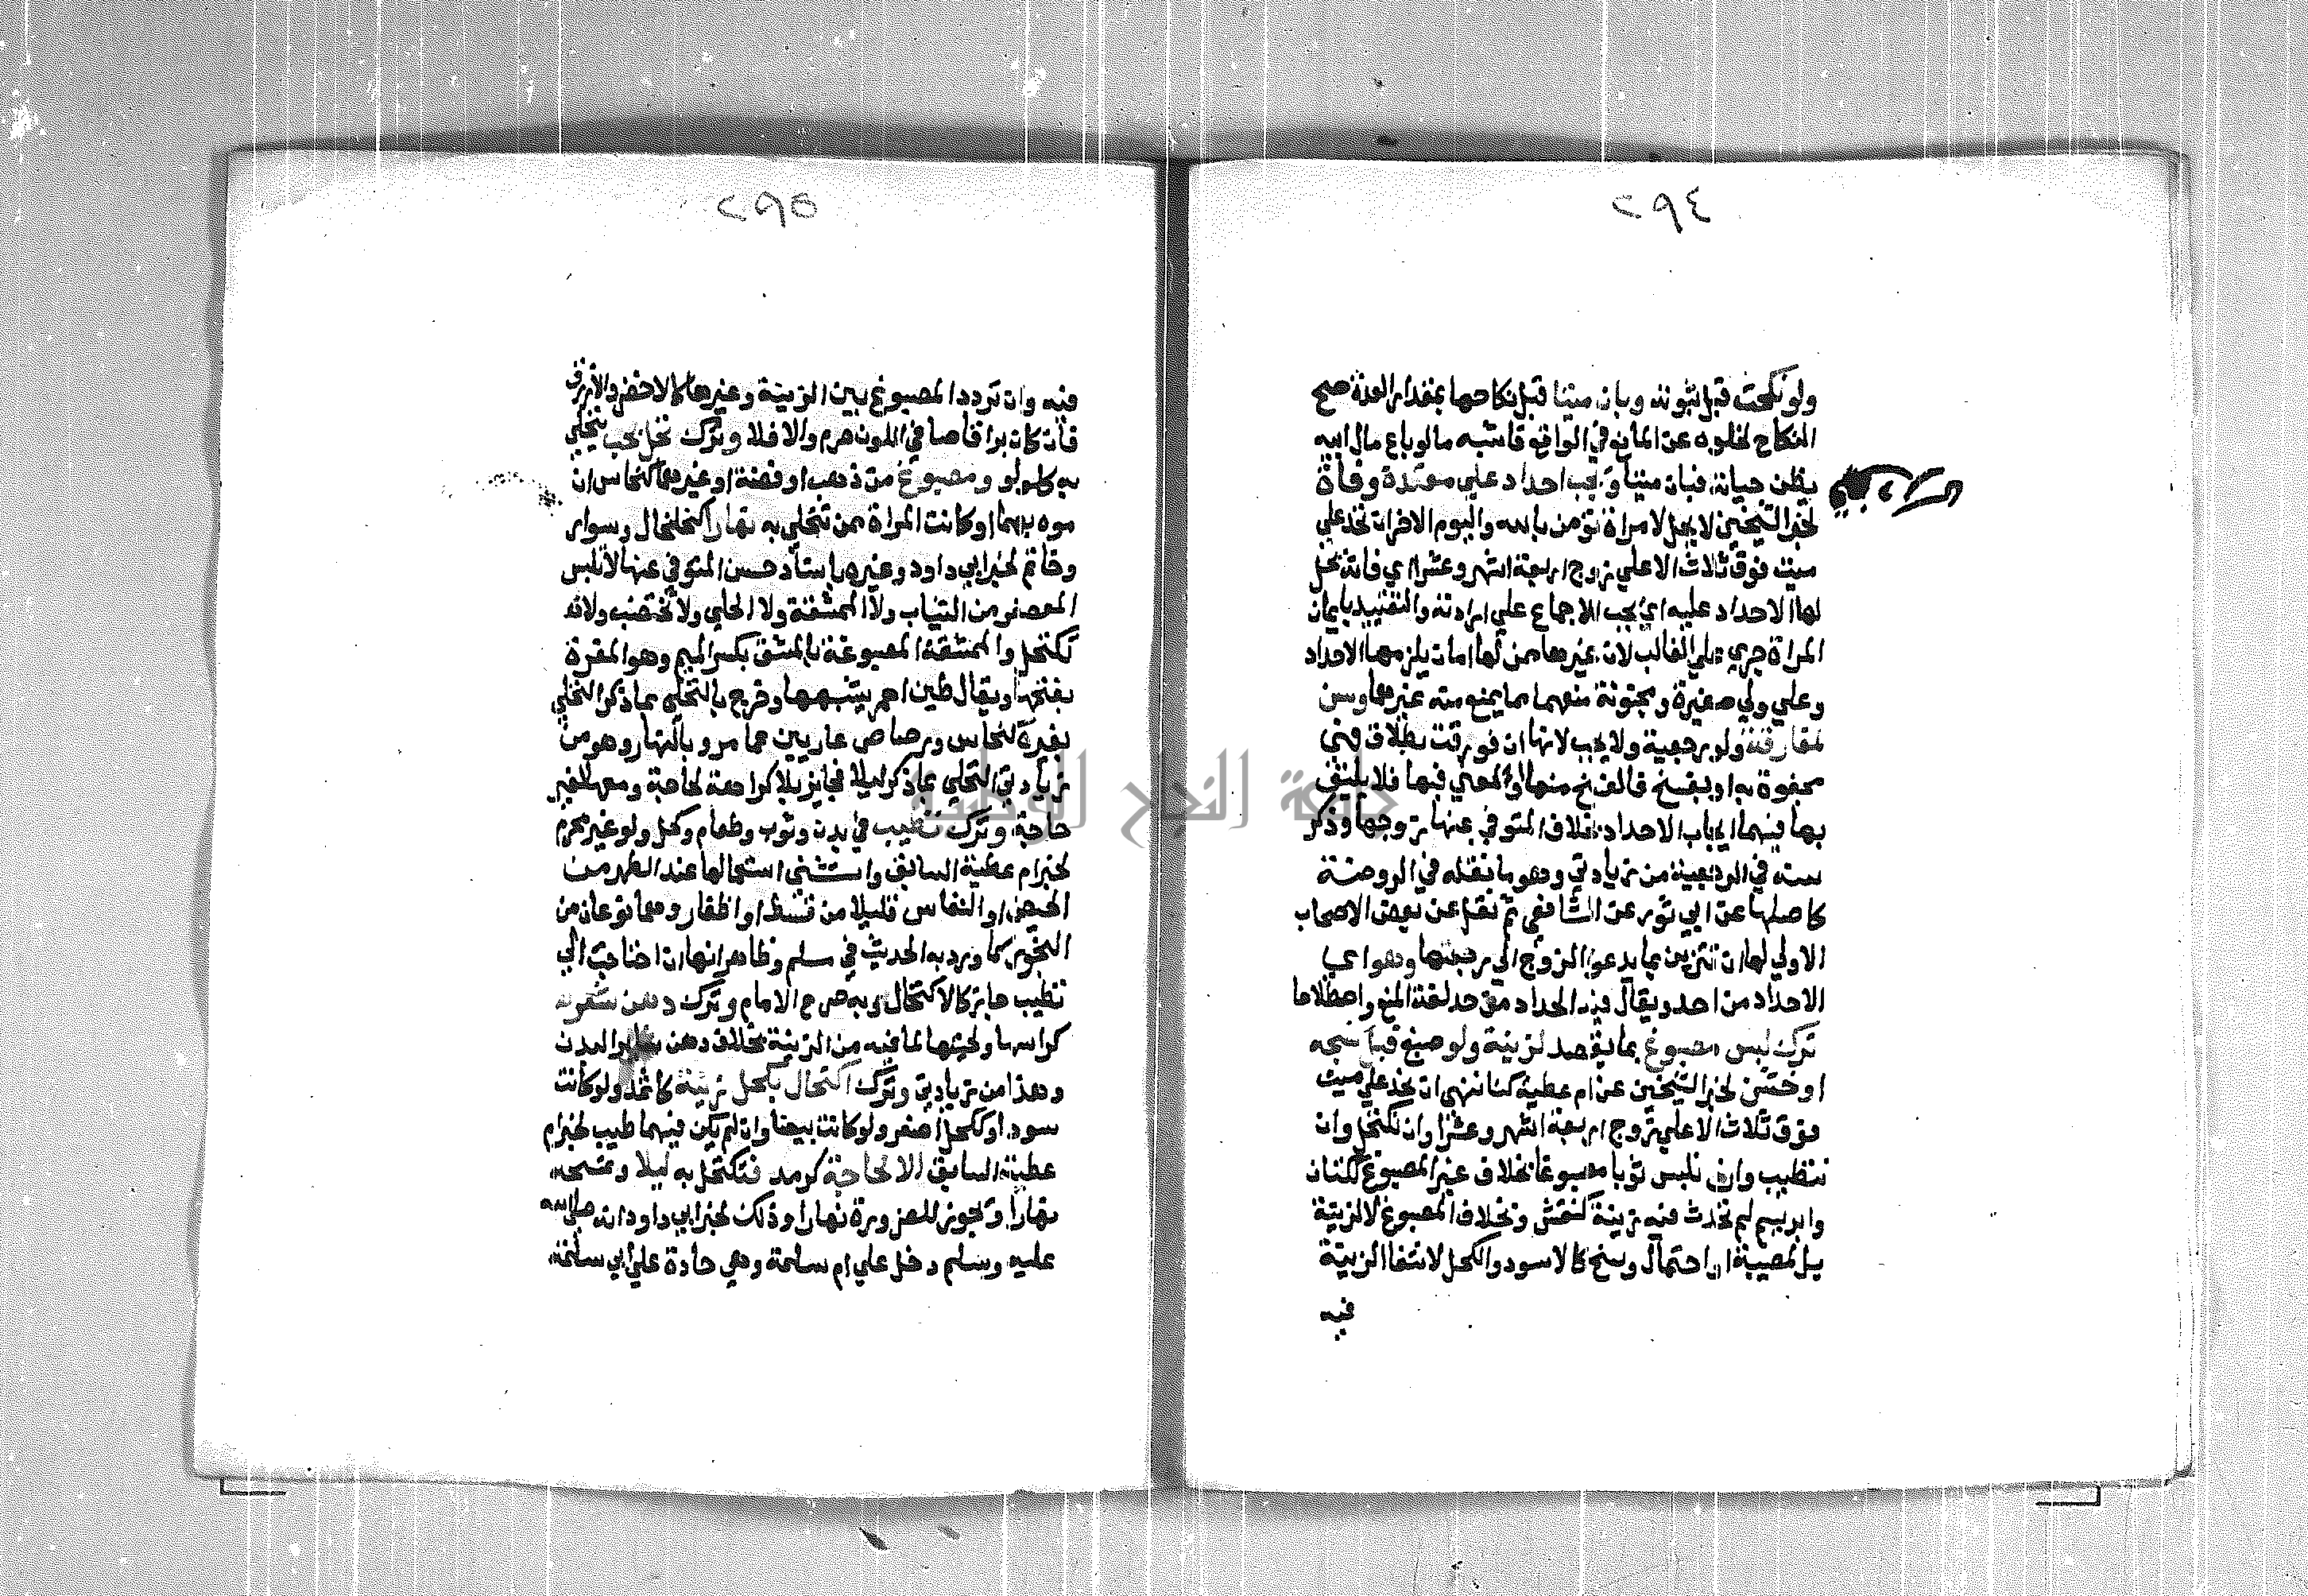 ٢٩٤
ولو نكحت قبل ثبوته وبان ميتا قبل نكاحها بمقدار العدة صح
النكاح لخلوه عن المانع في الواقع فاشبه ما لو باع مال ابيه
يظن حياته فبان ميتا ويجب احداد علي معتدة وفاة
لخبر الشيخين لا يحل لامراة تؤمن بالله واليوم الاخر ان تحد علي
ميت فوق ثلاث الا علي زوج اربعة اشهر وعشرا اي فانه يحل
لها الاحداد عليه اي يجب للاجماع علي ارادته والتقييد بايمان
المراة جري علي الغالب لان غيرها ممن لها امان يلزمها الاحداد
وعلي ولي صغيرة ومجنونة منعهما مما يمنع منه غيرهما وسن
لمفارقة ولو رجعية ولا يجب لانها ان فورقت بطلاق فهي
مجفوة به او بفسخ فالفسخ منها او لمعني فيها فلا يليق
بها فيهما ايجاب الاحداد بخلاف المتوفي عنها زوجها وذكر
سنه في الرجعية من زيادتي وهو ما نقله في الروضة
كاصلها عن ابي ثور عن الشافعي ثم نقل عن بعض الاصحاب
الاولي لها ان تتزين بما يدعو الزوج الي رجعتها وهو اي
الاحداد من احد ويقال فيه الحداد من حد لغة المنع واصطلاحا
ترك لبس مصبوغ بما يقصد لزينة ولو صبغ قبل نسجه
او خشن لخبر الشيخين عن ام عطية كنا ننهي ان نحد علي ميت
فوق ثلاث الا علي زوج اربعة اشهر وعشرا وان نكتحل وان
نتطيب وان نلبس ثوبا مصبوغا بخلاف غير المصبوغ ككتان
وابريسم لم تحدث فيه زينة كنقش وبخلاف المصبوغ لا لزينة
بل لمصيبة او احتمال وسخ كالاسود والكحل لانتفا الزينة
فيه
٢٩٥
فيه وان تردد المصبوغ بين الزينة وغيرها كالاخضر والازرق
فان كان براقا صافي اللون حرم والا فلا وترك تحل بحب يتحلي
به كلولو ومصبوغ من ذهب او فضة او غيرهما كنحاس ان
موه بهما او كانت المراة ممن تتحلي به نهارا كخلخال وسوار
وخاتم لخبر ابي داود وغيره باسناد حسن المتوفي عنها لا تلبس
المعصفر من الثياب ولا الممشقة ولا الحلي ولا تختضب ولا
تكتحل والممشقة المصبوغة بالمشق بكسر الميم وهو المغرة
بفتحها ويقال طين احمر يشبهها وخرج بالتحلي بما ذكر التحلي
بغيره كنحاس ورصاص عاريين عما مر وبالنهار وهو من
زيادتي التحلي بما ذكر ليلا فجايز بلا كراهة لحاجة ومعها لغير
حاجة وترك تطيب في بدن وثوب وطعام وكحل ولو غير محرم
لخبر ام عطية السابق واستثني استعمالها عند الطهر من
الحيض او النفاس قليلا من قسط او اظفار وهما نوعان من
البخور كما ورد به الحديث في مسلم وظاهر انها ان احتاجت الي
تطيب جاز كالاكتحال وبه صرح الامام وترك دهن شعر
كراسها ولحيتها لما فيه من الزينة بخلاف دهن ساير البدن
وهذا من زيادتي وترك اكتحال بكحل زينة كاثمد ولو كانت
سودا وكحل اصفر ولو كانت بيضا وان لم يكن فيهما طيب لخبر ام
عطية السابق الا لحاجة كرمد فتكتحل به ليلا وتمسحه
نهارا ويجوز للضرورة نهارا وذلك لخبر ابي داود انه صلي الله
عليه وسلم دخل علي ام سلمة وهي حادة علي ابي سلمة
جامعة النجاح الوطنية